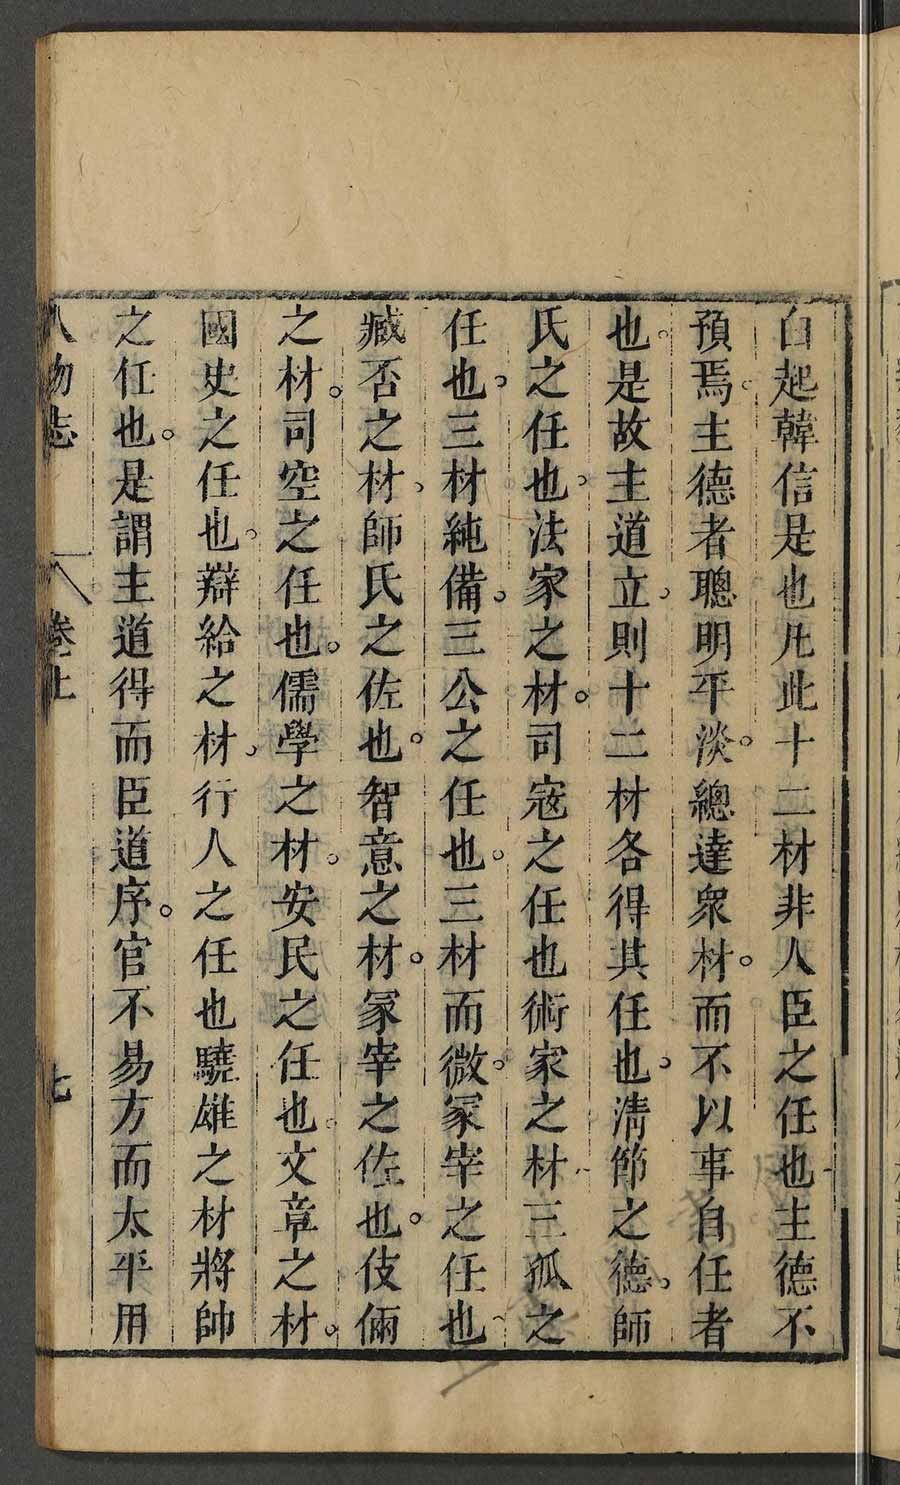 白起韓信是也凡此十二材非人臣之任也主德不
預焉主德者聰明平淡。總達衆材。而不以事自任者
也。是故主道立、則十二材各得其任也、淸節之德。師
氏之任也、法家之材。司寇之任也術家之材、三孤之
任也、三材純備、三公之任也。三材而微。冢宰之任也、
臧否之材、師氏之佐也。智意之材。冢宰之佐也。伎倆
之材。司空之任也。儒學之材。安民之任也。文章之材。
國史之任也。辯給之材、行人之任也驍雄之材將帥
之任也。是謂主道得而臣道序。官不易方而太平用
人物志 卷上 七